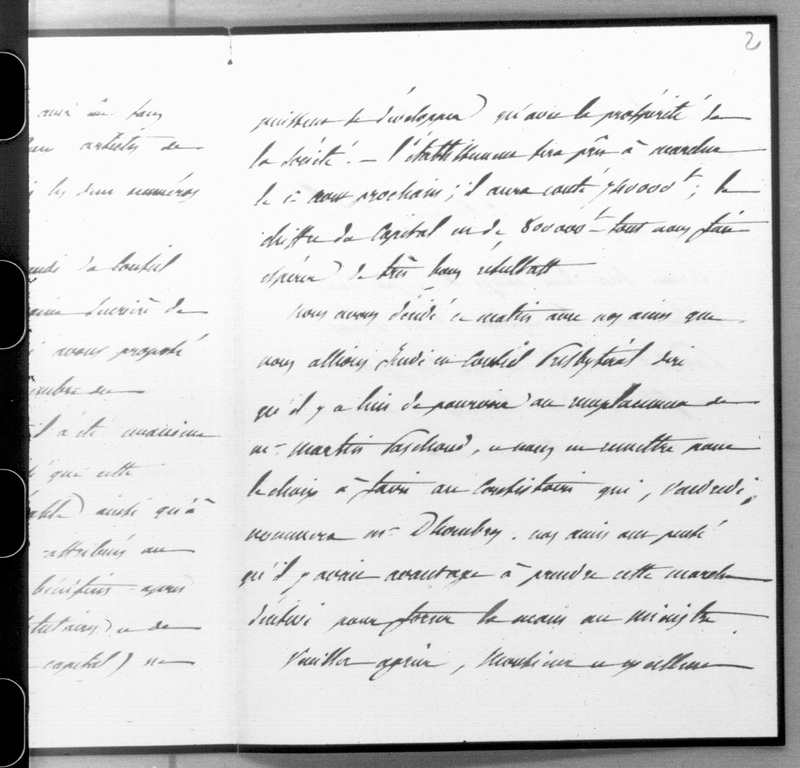 2
avoir un sans
artistes de
les deux numéros
du Conseil
ouvrière de
avons proposé
membre du
il a été
que cette
ainsi qu'à
attribués au
bénéfices après
statutaires) et de
capital) ne
puissent se développer) qu'avec la prospérité de
la société. — l'établissement sera prêt à marcher
le 1er août prochain ; il aura couté 740000 f ; le
chiffre du Capital est de 800000 f — tout nous fait
espérer) de très bons résultats
Nous avons décidé ce matin avec nos amis que
nous allions Jeudi en Conseil Presbytéral dire
qu'il y a lieu de pourvoir au remplacement de
Mr Martin Paschoud, et nous en remettre pour
le choix à faire au Consistoire qui, Vendredi,
nommera Mr Dhombres. nos amis ont pensé
qu'il y avait avantage à prendre cette marche
pour forcer la main au ministre
Veuillez agréer, Monsieur et excellent